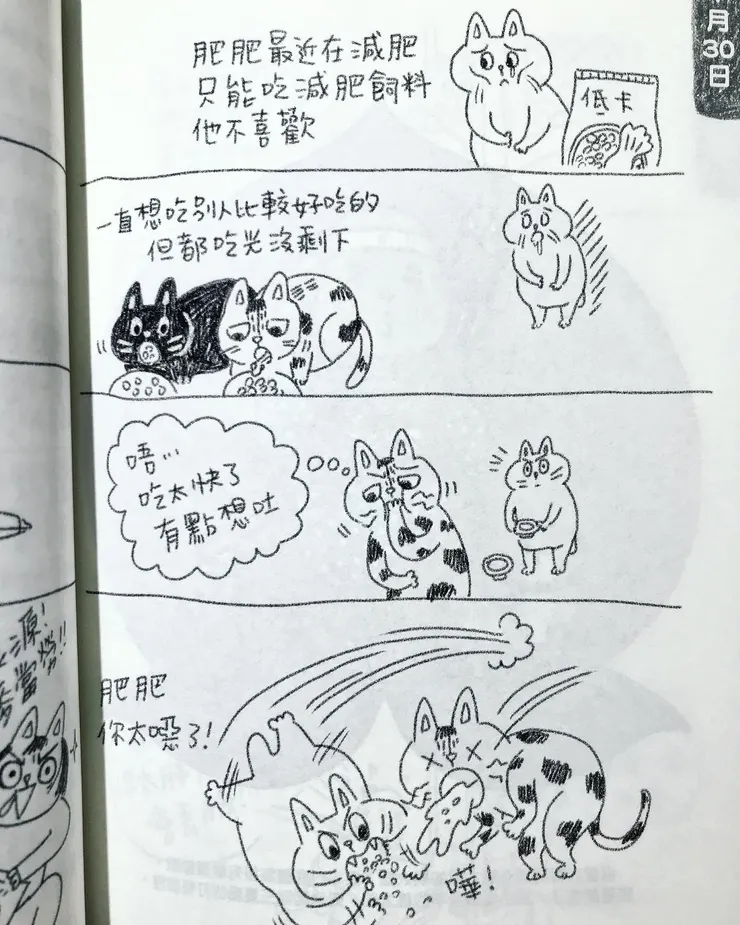 月
30
日
肥肥最近在減肥
只能吃減肥飼料
他不喜歡
低卡
一直想吃別人比較好吃的
但都吃光沒剩下
唔…
吃太快了
有點想吐
肥肥
你太噁了!
嘩!
源!